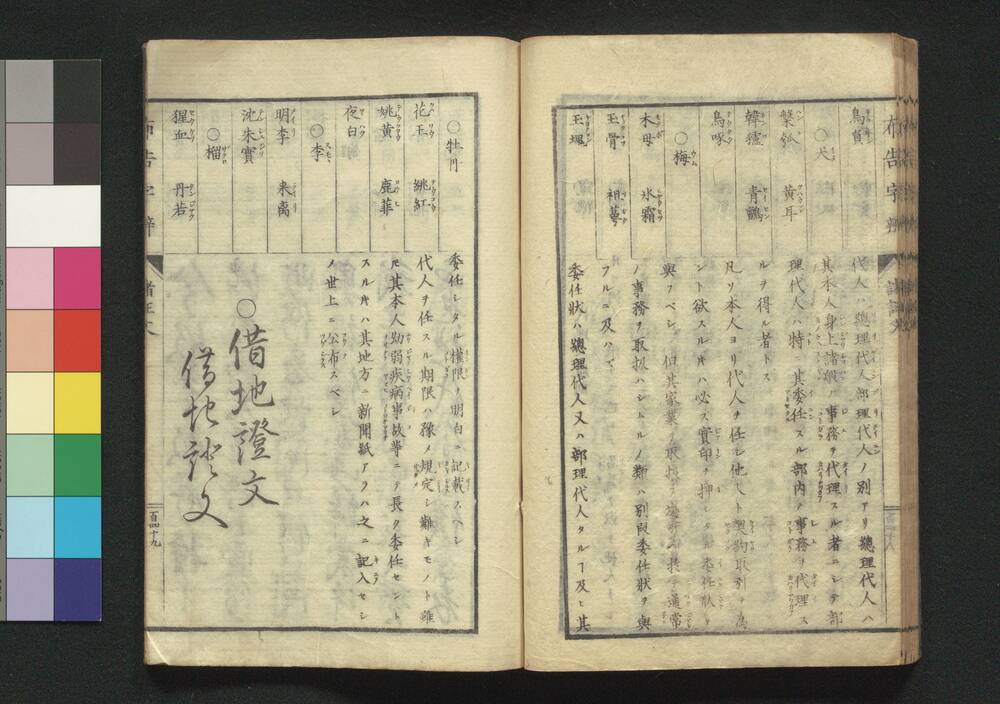 布告字辨
鳥員
○犬
黄耳
韓獹 青鸇
烏啄
○梅
木母 氷霜
玉骨
玉瑰
代人ハ總理代人部理代人ノ別アリ總理代人ハ
其本人身上諸般ノ事務ヲ代理スル者ニシテ部
理代人ハ特ニ其委任スル部内ノ事務ヲ代理ス
ルヲ得ル者トス
凡ソ本人ヨリ代人ヲ任シ他人ト契約取引ヲ為
ント欲スル片ハ必ス實印ヲ押シタル委任狀ヲ
與フベシ 但其家業ノ取扱
ノ事務ヲ取扱ハシムルノ類ハ別段委任狀ヲ與
フルニ及ハス
委任狀ハ總理代人又ハ部理代人タルヿ及ヒ其
○牡丹
花王 絩紅
姚黄 鹿菲
夜白
○李
明李 来禽
沈朱實
○榴
猩血 丹若
委任シタル權限ヲ明白ニ記載スヘシ
代人ヲ任スル期限ハ豫メ規定シ難キモノト雖
凡其本人幼弱疾病事故等ニテ長ク委任セント
スル片ハ其地方ニ新聞紙アラハ之ニ記入セシ
メ世上ニ公布スベシ
○借地證文
借地證文
布告字辨
諸証文
百四十九